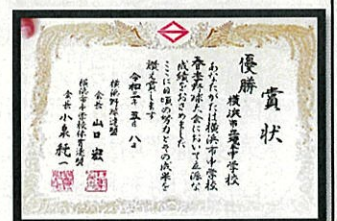 賞状
優勝
横浜市立 中学校
あなたがたは横浜市中学校
春季野球大会において立派な
成績をおさめました
ここに日頃の努力とその成果を
讃え賞します
令和二年五月八日
横浜野球連盟
会長 山口 宏
横浜市中学校体育連盟
会長 小泉 純一